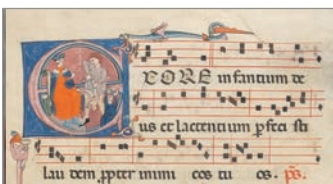 EORE infantium de
us et lactentium pfeci sti
lau dem ppter inimi cos tu os. ps.